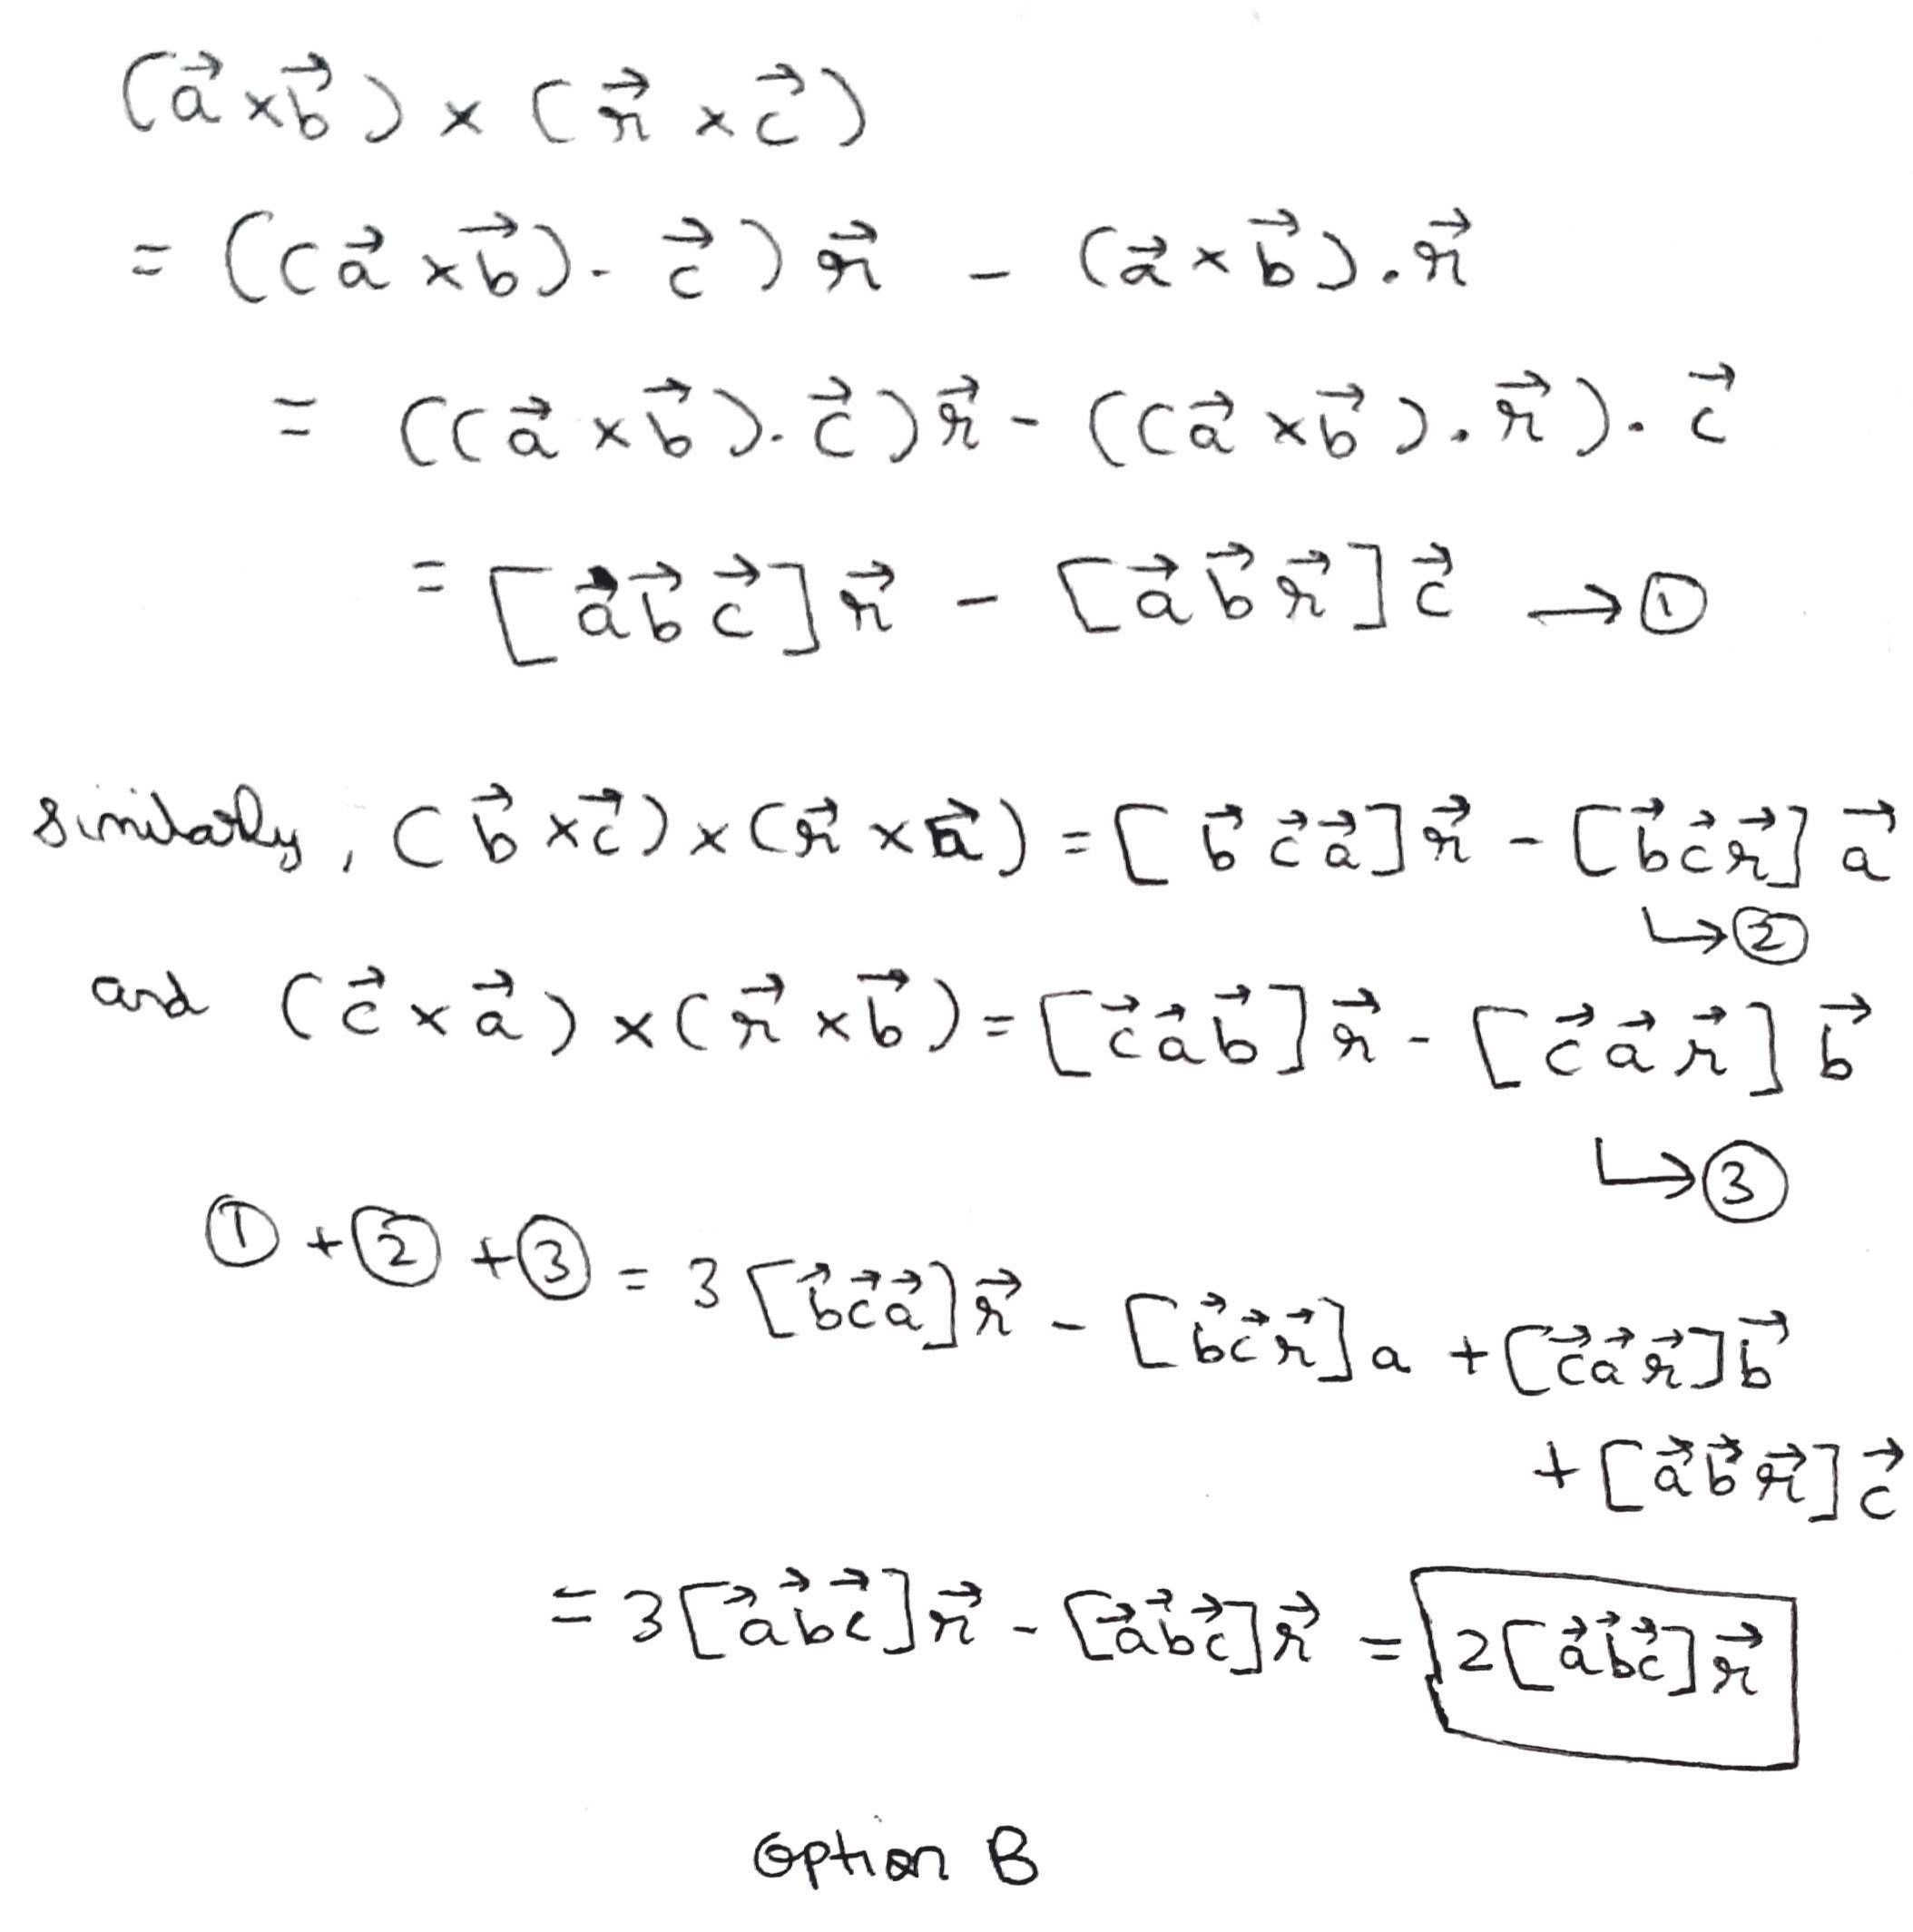 (a⃗ × b⃗) × (r⃗ × c⃗)
= ((a⃗ × b⃗). c⃗) r⃗ - (a⃗ × b⃗).r⃗
= ((a⃗ × b⃗). c⃗) r⃗ - ((a⃗ × b⃗). r⃗). c⃗
= [a⃗ b⃗ c⃗] r⃗ - [a⃗ b⃗ r⃗] c⃗ → ①
Similarly, (b⃗ × c⃗) × (r⃗ × a⃗) = [b⃗ c⃗ a⃗] r⃗ - [b⃗ c⃗ r⃗] a⃗
↳ ②
and (c⃗ × a⃗) × (r⃗ × b⃗) = [c⃗ a⃗ b⃗] r⃗ - [c⃗ a⃗ r⃗] b⃗
↳ ③
① + ② + ③ = 3 [b⃗ c⃗ a⃗] r⃗ - [b⃗ c⃗ r⃗] a + [c⃗ a⃗ r⃗] b⃗
+ [a⃗ b⃗ r⃗] c⃗
= 3 [a⃗ b⃗ c⃗] r⃗ - [a⃗ b⃗ c⃗] r⃗ = 2 [a⃗ b⃗ c⃗] r⃗
Option B